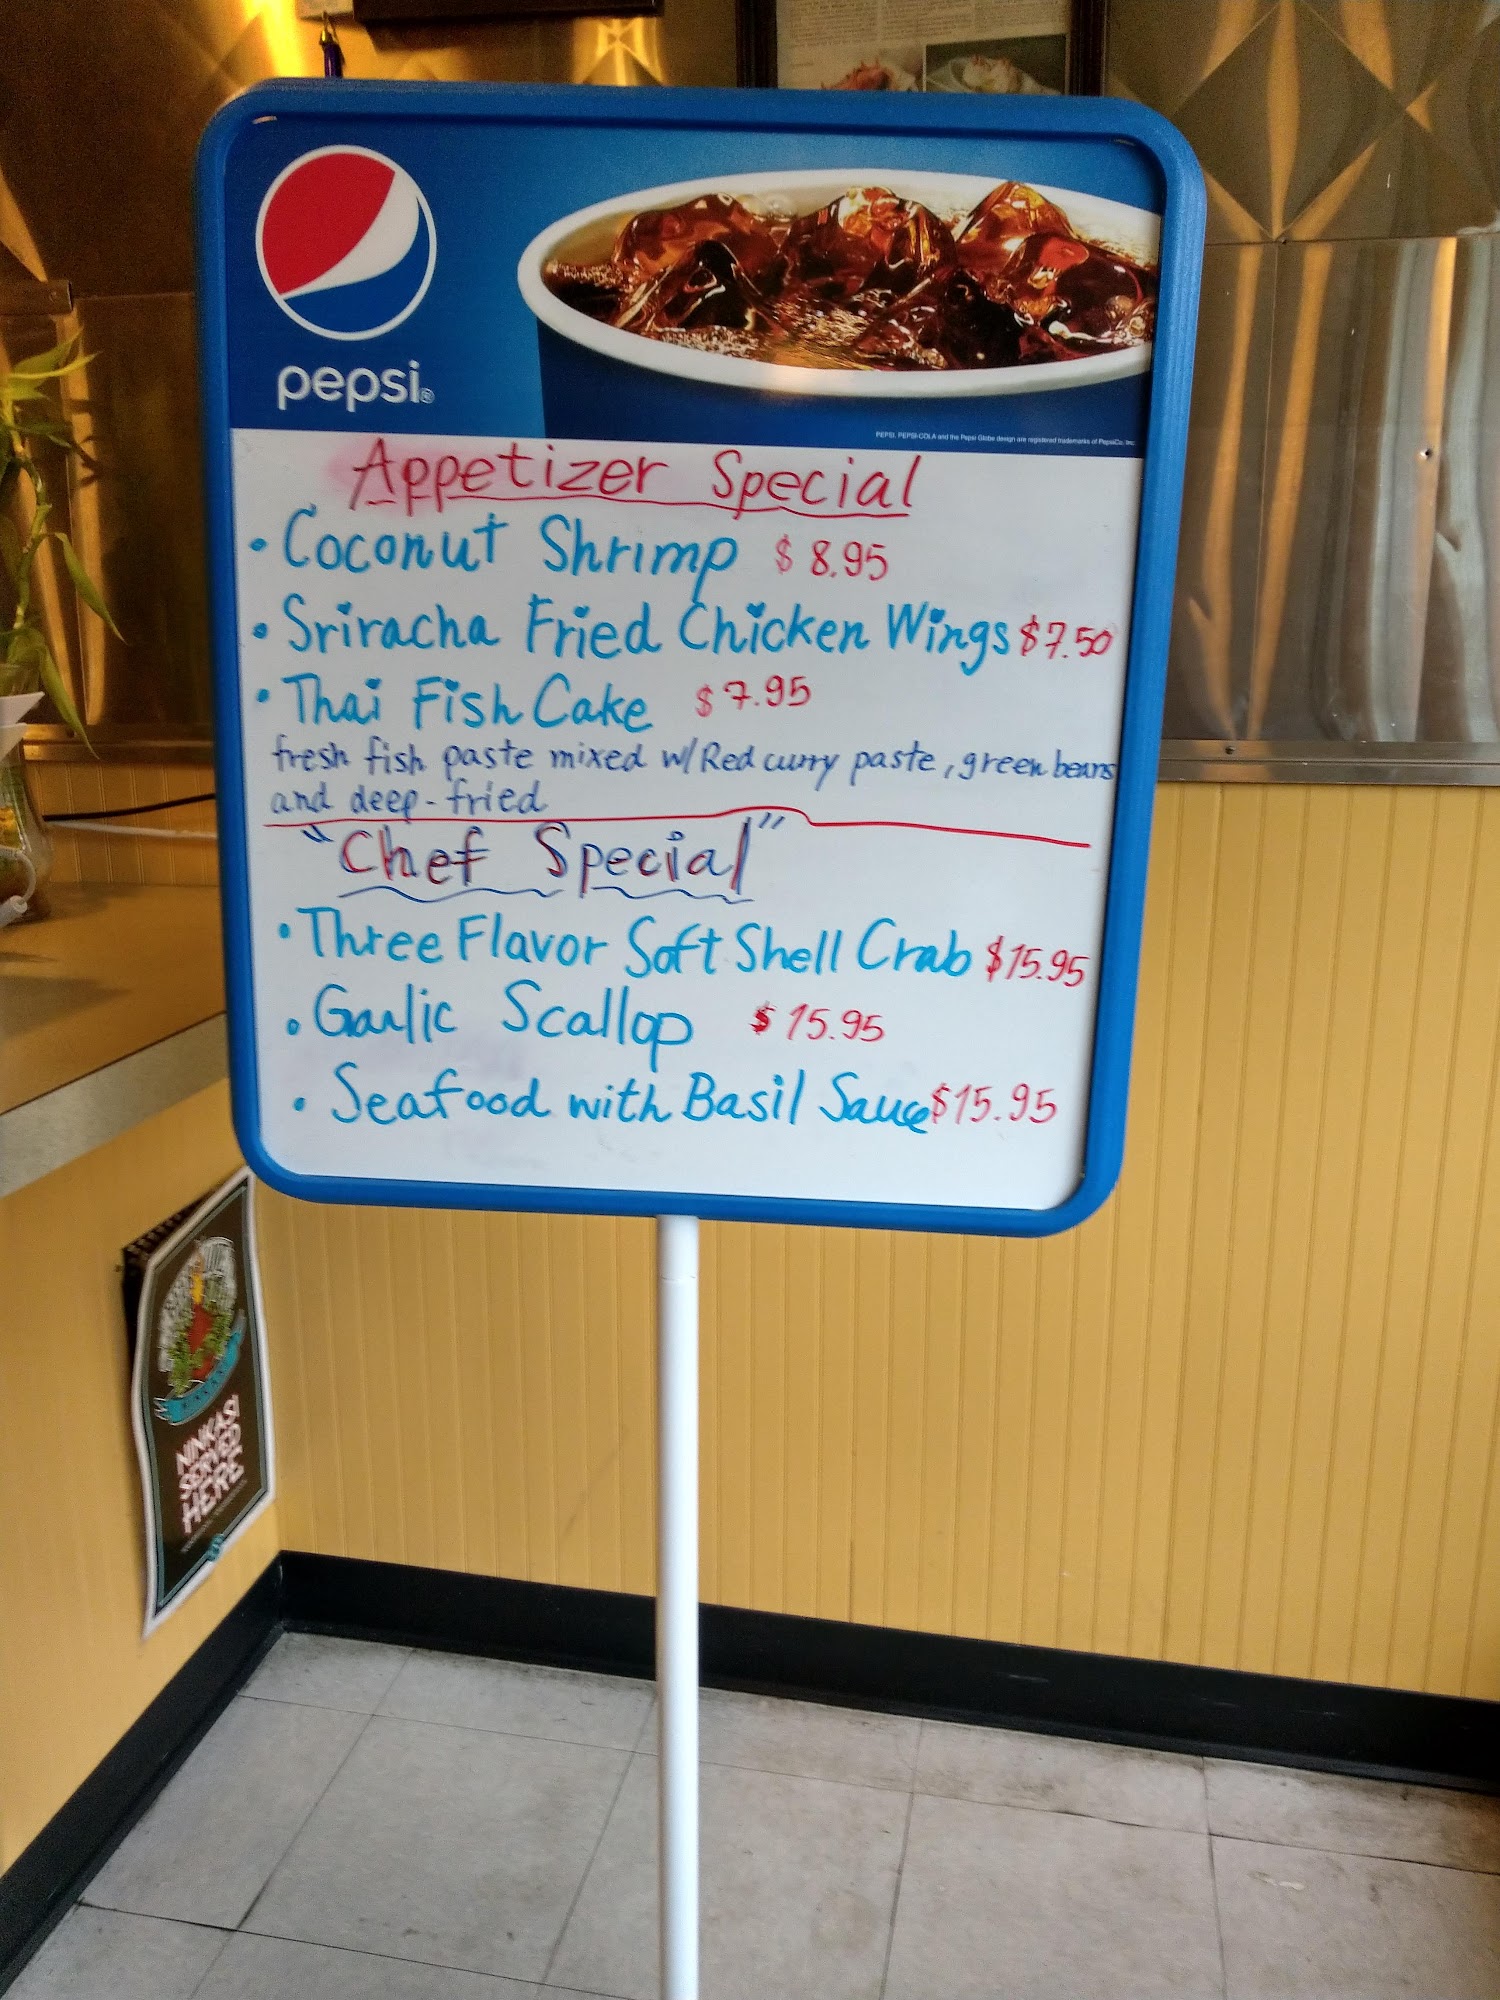 pepsi®
PEPSI, PEPSI-COLA and the Pepsi Globe design are registered trademarks of PepsiCo, Inc.
Appetizer Special
• Coconut Shrimp $ 8.95
• Sriracha Fried Chicken Wings $7.50
• Thai Fish Cake $7.95
fresh fish paste mixed w/Red curry paste, green beans
and deep-fried
"Chef Special"
• Three Flavor Soft Shell Crab $15.95
• Garlic Scallop $15.95
• Seafood with Basil Sauce $15.95
NINKASI
SERVED
HERE